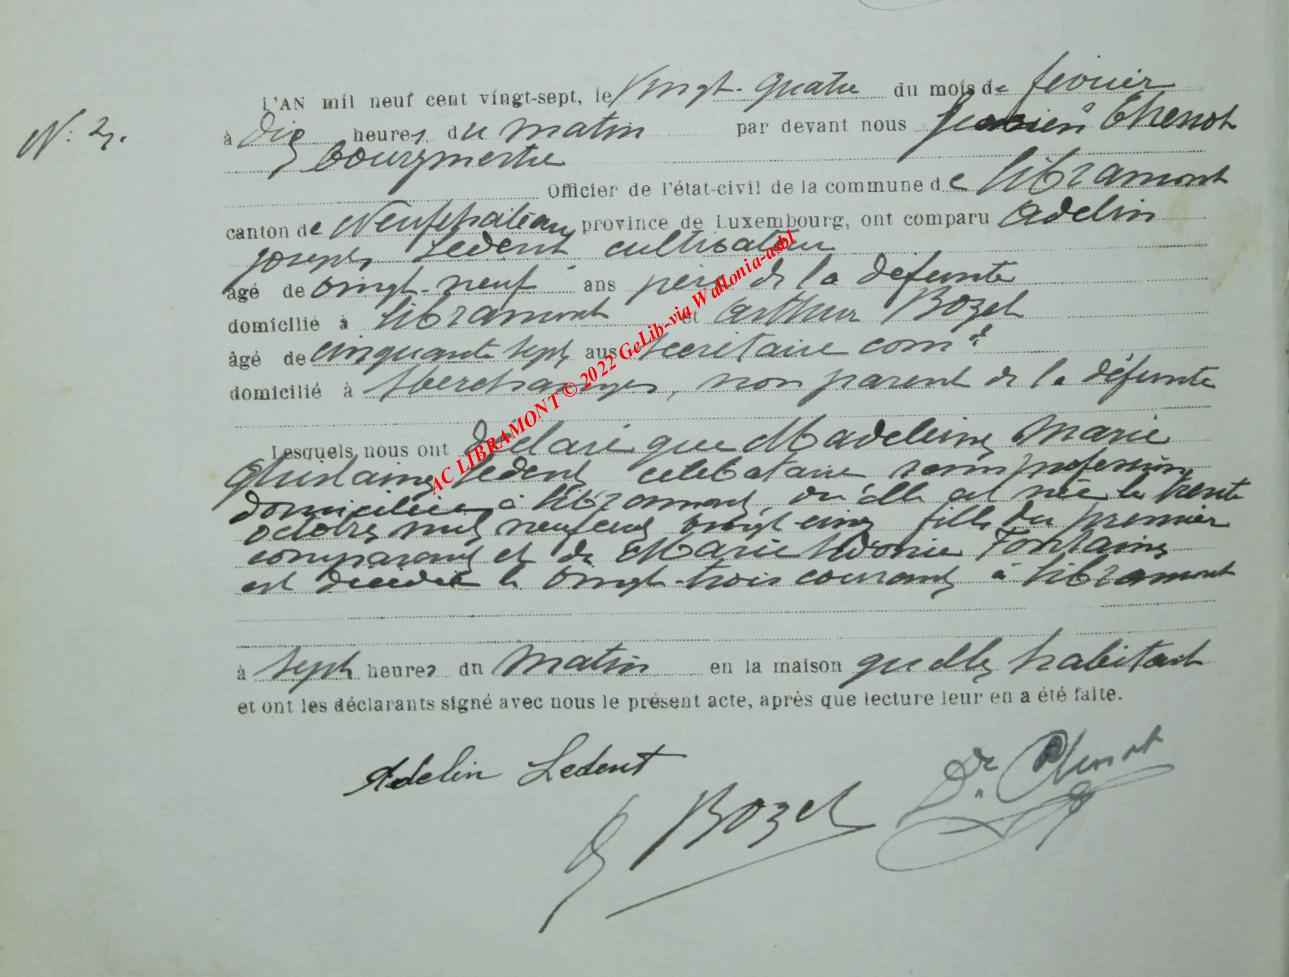 L'AN mil neuf cent vingt-sept, le vingt-quatre du mois de février
N° 2.
à dix heures du matin par devant nous Thenot
bourgmestre
Officier de l'état-civil de la commune de Libramont
canton de Neufchateau province de Luxembourg, ont comparu Adelin
Joseph Ledent cultivateur
âgé de vingt-neuf ans père de la défunte
domicilié à Libramont et Arthur Bozet
âgé de cinquante sept ans secrétaire com.al
domicilié à non parent de la défunte
Lesquels nous ont déclaré que Madeleine Marie
Ghislaine Ledent célibataire sans profession
domiciliée à Libramont où elle est née le trente
octobre mil neuf cent vingt-cinq fille du premier
comparant et de Marie Fontaine
est décédée le vingt-trois courant à Libramont
à sept heures du matin en la maison qu'elle habitait
et ont les déclarants signé avec nous le présent acte, après que lecture leur en a été faite.
Adelin Ledent
Bozet
Dr
AC LIBRAMONT © 2022 GeLib-via Wallonia-asbl